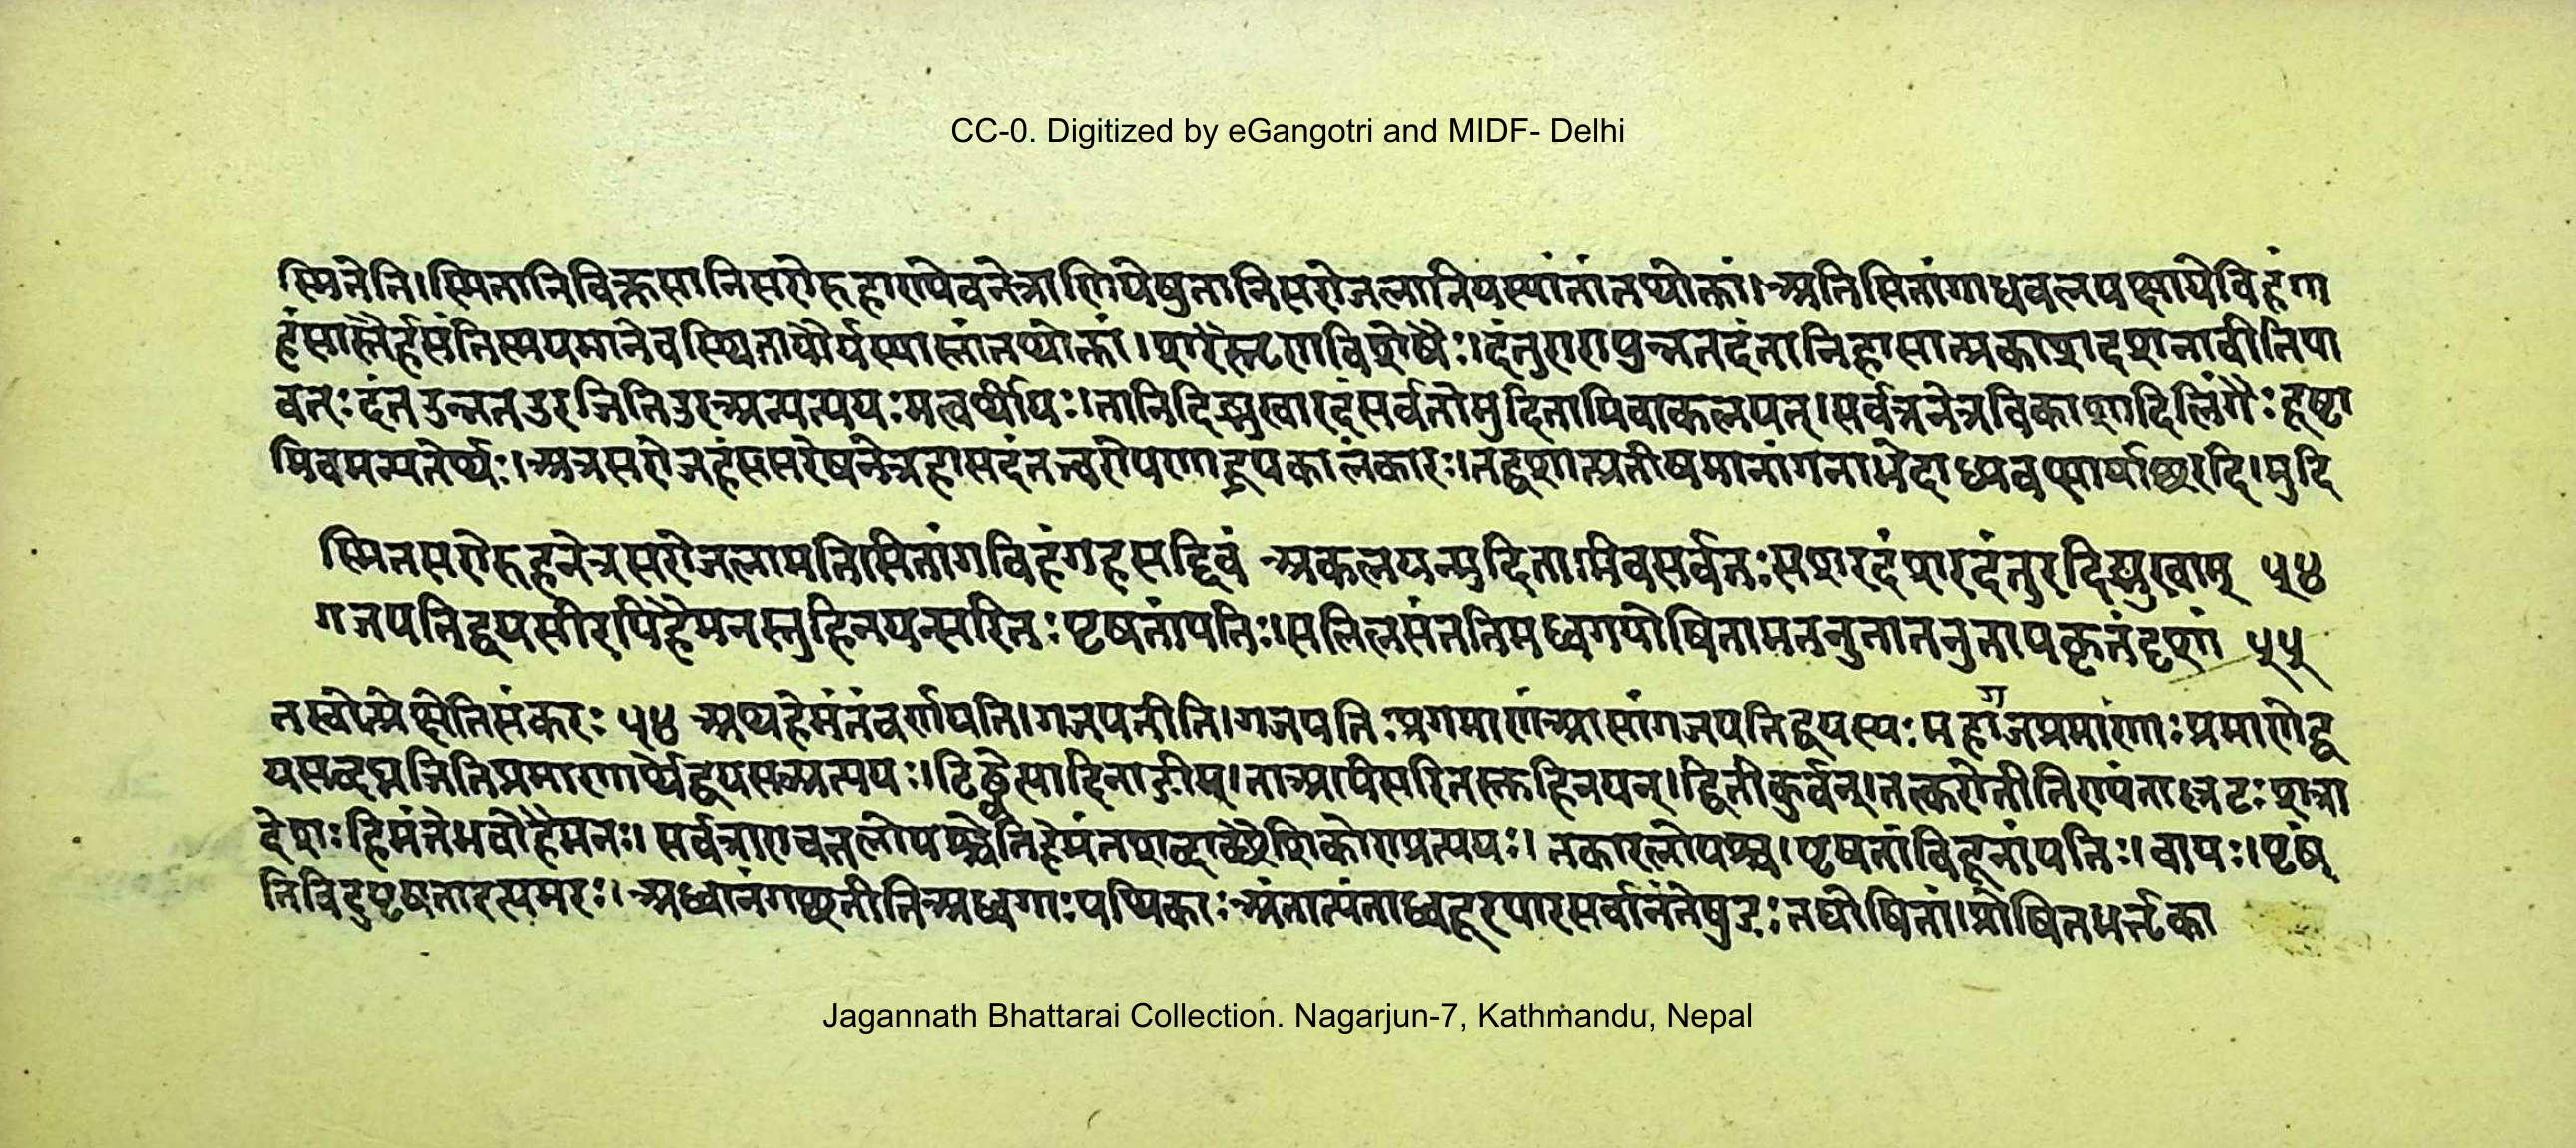 CC-0. Digitized by eGangotri and MIDF- Delhi
स्मितेति। स्मितानि विकसानि सरोरुहाण्येव नेत्राणि येषु तानि सरोजलानि यस्यां तां तथोक्तां। अतिसितांगा धवलपक्षा ये विहंगा
हंसास्तैर्हसंति स्मयमाने व स्थिता द्यौर्यस्यास्तां तथोक्तां। दंतुराण्युन्नतदंतानि हासात्प्रकाशदशनानीति या
वत्ः दंत उन्नत उरजिति उरच्प्रत्ययः मत्वर्थीयः। तानि दिङ्मुखा रदं सर्वतो मुदितामिवाकलयत्। सर्वत्र नेत्रविकाशादिलिंगैः हृष्टा
मिव मन्यतेर्थः। अत्र सरोजहंससरेष नेत्रहासदंतत्वरोपणाद्रूपकालंकारः। तद्वशात्प्रतीयमानांगनाभेदाध्यवसायाच्छरदि। मुदि
स्मितसरोरुहनेत्रसरोजलामतिसितांगविहंगहसद्दिवं अकलयन्मुदितामिव सर्वतः सशरदं शरदंतुरदिङ्मुखाम् ५४
गजपतिद्वयसीरपि हैमनस्तुहिनयन्सरितः पृषतांपतिः। सलिलसंततिमध्वगयोषितामतनुतातनुतापकृतं दृशां ५५
तत्वोत्प्रेक्षेति संकरः ५४ अथ हेमंतं वर्णयति। गजपतीति। गजपतिः प्रगमाणं आसां गजपतिद्वयस्यः महागजप्रमाणाः प्रमाणे द्व
यसद्दघ्नञिति प्रमाणार्थे द्वयसच्प्रत्ययः। टिड्ढेत्यादिना ङीप्। ता अपि सरितस्तुहिनयन्। हिनीकुर्वन्। तत्करोतीति ण्यंता ल्लटः शत्रा
देशः हिमंते भवो हैमनः। सर्वत्राण्च तलोपश्चेति हेमंतशब्दाच्छैषिकोण्प्रत्ययः। तकारलोपश्च। पृषतां विंदूनां पतिः। वायुः। पृषं
ति विंदुपृषता इत्यमरः। अध्वानं गच्छतीति अध्वगाः पथिकाः अंतात्यंताध्वदूरपारसर्वानंतेषु डः तद्योषितां। प्रोषितभर्तृका
Jagannath Bhattarai Collection. Nagarjun-7, Kathmandu, Nepal